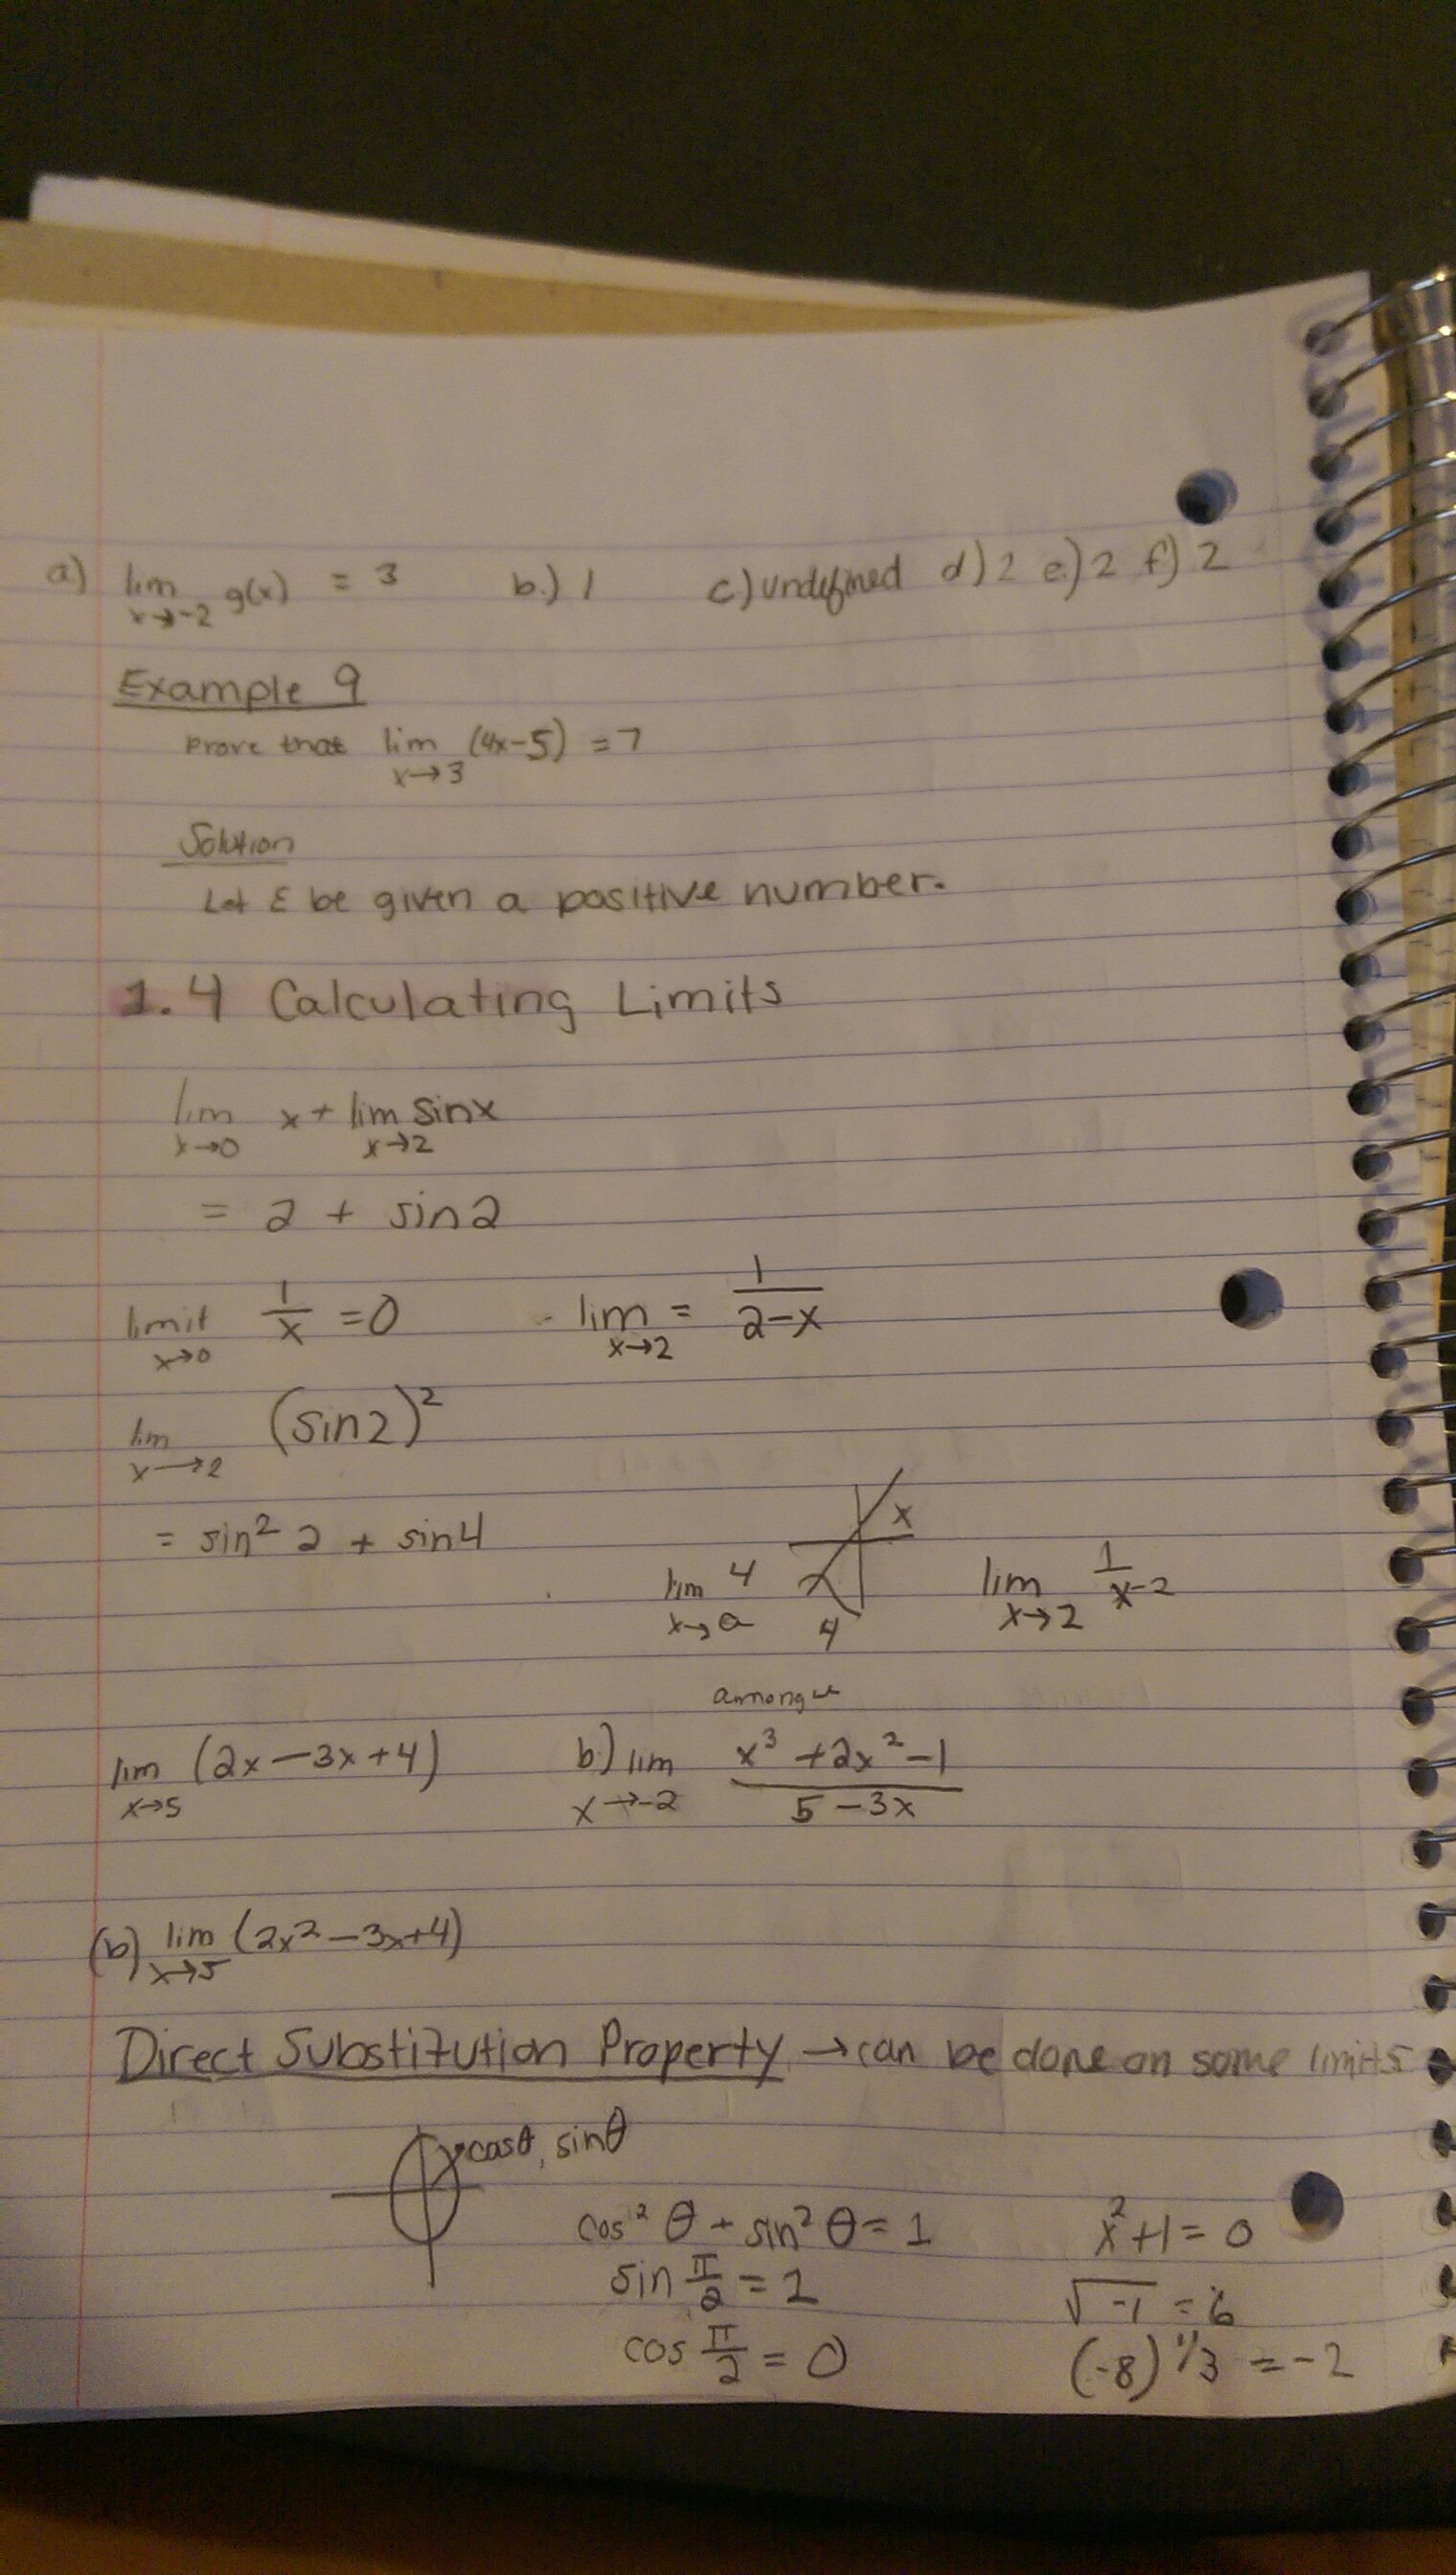 a) lim x→-2 g(x) = 3 b.) 1 c) undefined d) 2 e.) 2 f) 2
Example 9
Prove that lim x→3 (4x-5) = 7
Solution
Let ε be given a positive number.
1.4 Calculating Limits
lim x→0 x + lim x→2 sinx
= 2 + sin2
limit x→0 1/x = 0 lim x→2 = 1/(2-x)
lim x→2 (sin2)²
= sin² 2 + sin4
x
lim x→a 4 4 lim x→2 1/x-2
lim x→5 (2x-3x+4) b.) lim x→-2 (x³+2x²-1)/(5-3x)
(b) lim x→5 (2x²-3x+4)
Direct Substitution Property → can be done on some limits
cosθ, sinθ
cos² θ + sin² θ = 1 x²+1 = 0
sin π/2 = 1 √-1 = i
cos π/2 = 0 (-8)^1/3 = -2